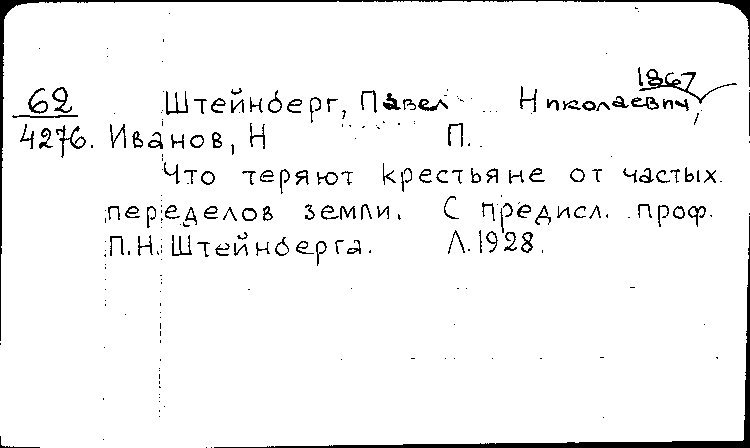 1867
62 Штейнберг, Павел Николаевич,
4276. Иванов, Н П.
Что теряют крестьяне от частых
переделов земли. С предисл. проф.
П.Н. Штейнберга. Л. 1928.